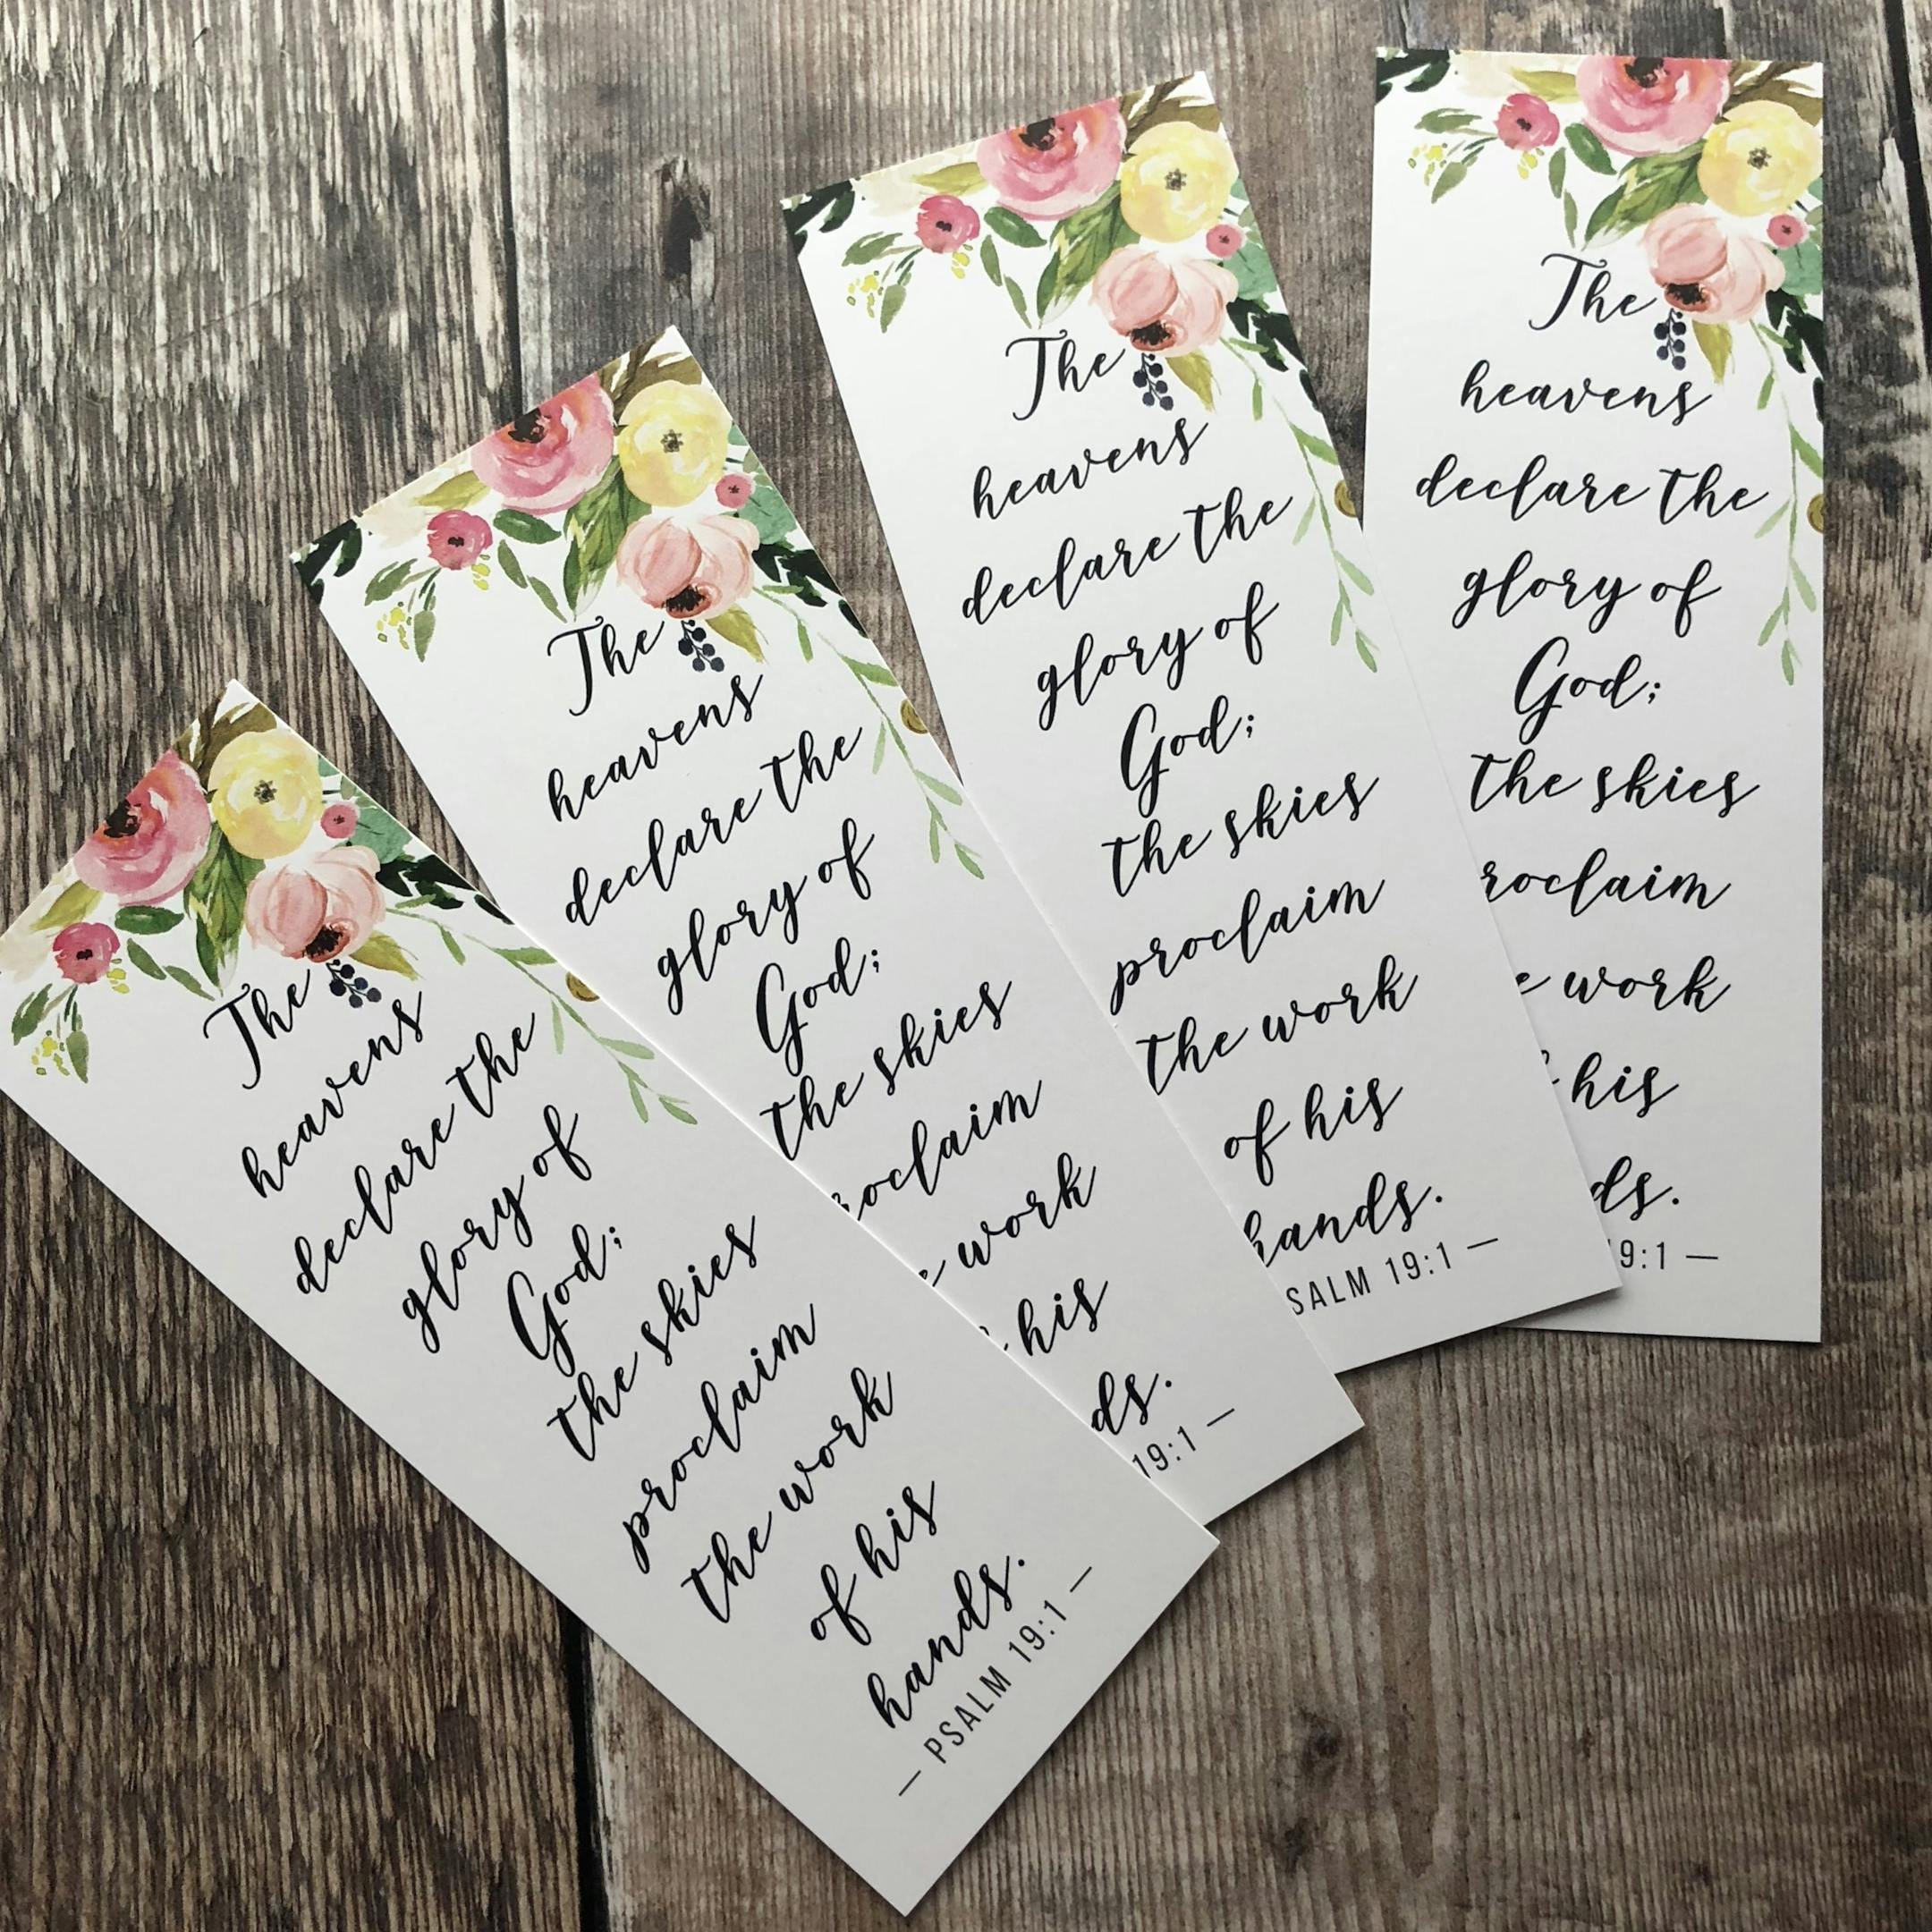 The
heavens
declare the
glory of
God;
the skies
proclaim
the work
of his
hands.
— PSALM 19:1 —
The
heavens
declare the
glory of
God;
the skies
oclaim
work
his
ds.
19:1 —
The
heavens
declare the
glory of
God;
the skies
proclaim
the work
of his
hands.
SALM 19:1 —
The
heavens
declare the
glory of
God;
the skies
roclaim
e work
his
ds.
9:1 —